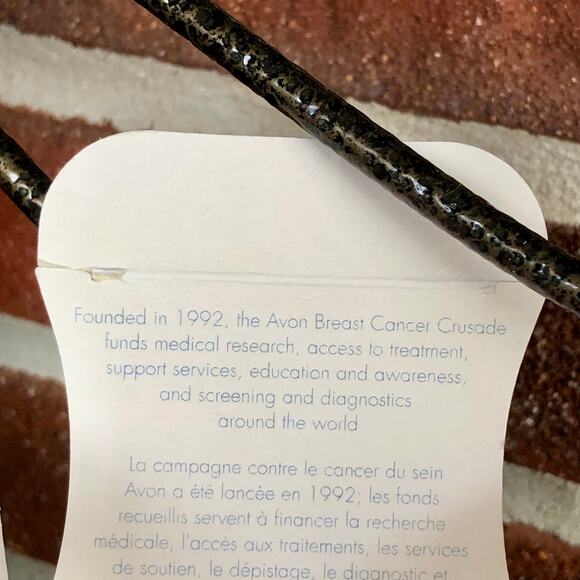 Founded in 1992, the Avon Breast Cancer Crusade
funds medical research, access to treatment,
support services, education and awareness,
and screening and diagnostics
around the world
La campagne contre le cancer du sein
Avon a été lancée en 1992; les fonds
recueillis servent à financer la recherche
médicale, l'accès aux traitements, les services
de soutien, le dépistage, le diagnostic et